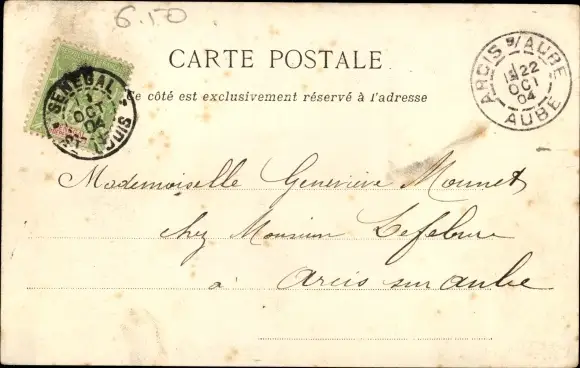 6.50
CARTE POSTALE
Ce côté est exclusivement réservé à l'adresse
SENEGAL
11
OCT
04
ST LOUIS
ARCIS S/AUBE
22
OCT
04
AUBE
Mademoiselle Geneviève Monnet
chez Monsieur Lefebvre
à Arcis sur aube